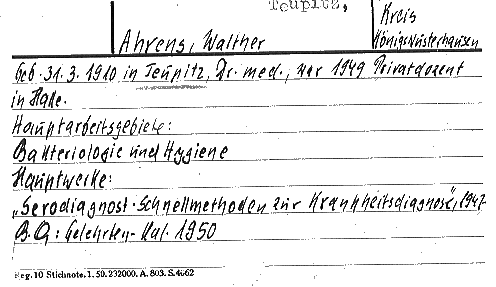 Teupitz,
Kreis
Königswusterhausen
Ahrens, Walther
Geb. 31.3.1910 in Teupitz, Dr. med., war 1949 Privatdozent
in Halle.
Hauptarbeitsgebiete:
Bakteriologie und Hygiene
Hauptwerke:
„Serodiagnost. Schnellmethoden zur Krankheitsdiagnose", 1947.
B.Q.: Gelehrten-Kal. 1950
Reg. 10 Stichnote. 1. 50. 232000. A. 803. S. 4662